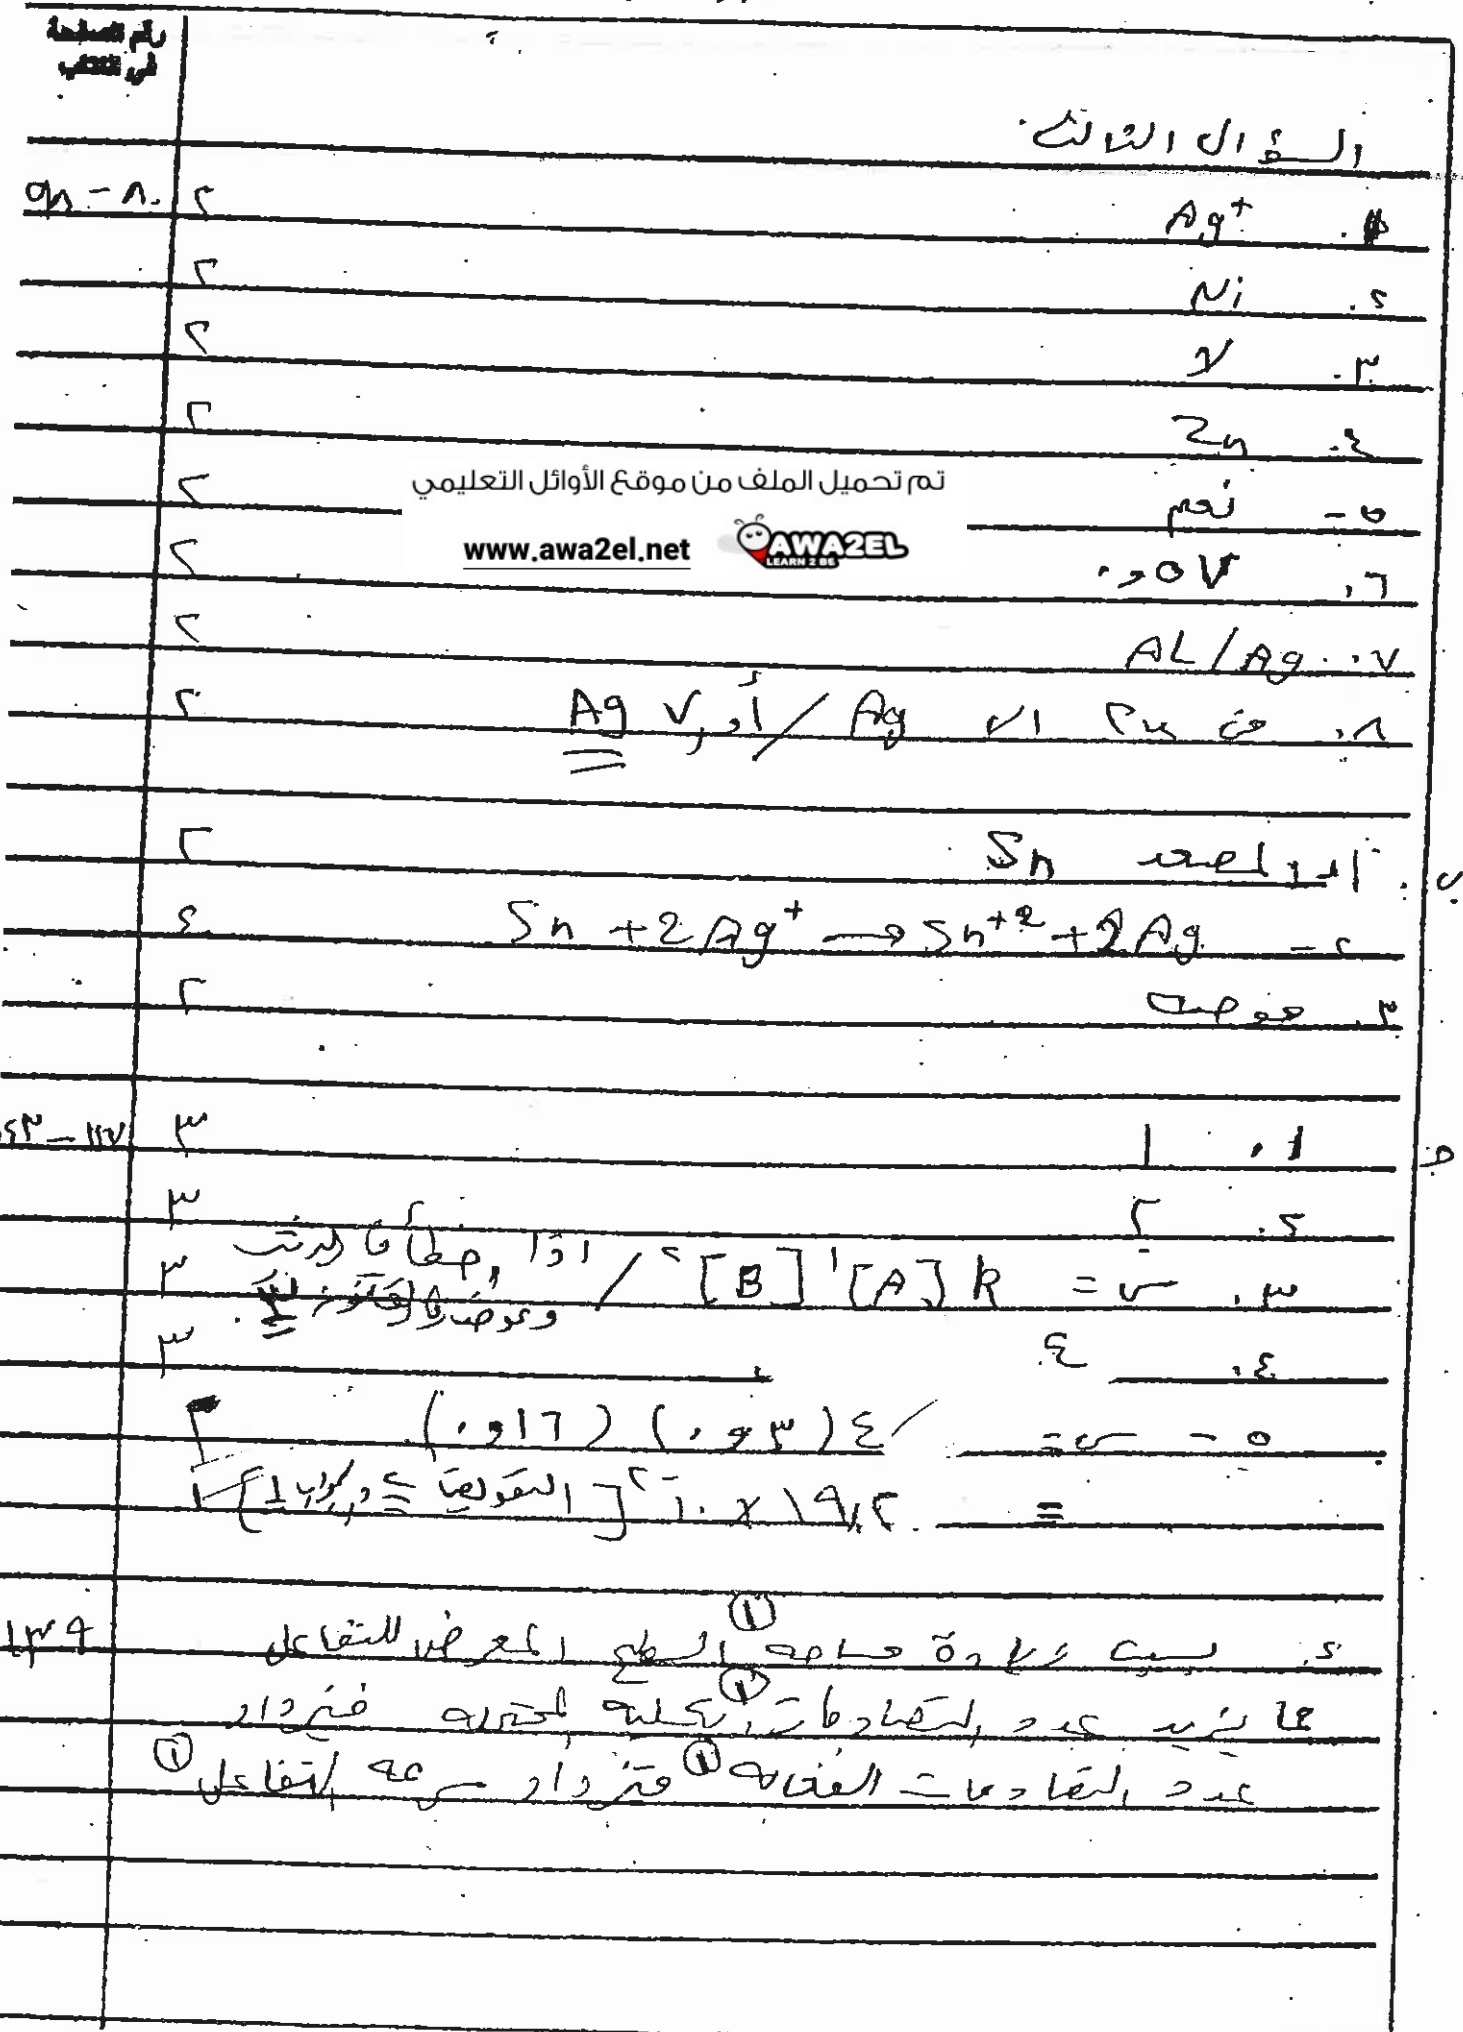 رقم الصفحة
في الكتاب
السؤال الثالث
Ag⁺ ٢
٢. Ni ٢
٣. لا ٢
٤. Zn ٢
تم تحميل الملف من موقع الأوائل التعليمي
٥- نعم ٢
www.awa2el.net AWA2EL
LEARN 2 BE
٦. ٠,٥٧ ٢
٧. Al/Ag ٢
٨. من الى Ag / أو Ag ٢
ب. ١. المصعد Sn ٢
٢- Sn + 2Ag⁺ → Sn⁺² + 2Ag ٤
٣. موجبة ٢
١. ١ ٣
٢. ٢ ٣
٣. س = k [A]¹ [B]² / اذا أخطأ في الرتب ٣
وعوض
٤. ٤ ٣
٥- س = ٤ (٠,٣) (٠,١٦) ٣
= ١٩,٢ × ١٠⁻² [التعويض ٢ والجواب ١]
بسبب زيادة مساحة السطح المعرض للتفاعل ① ١٣٩
مما يزيد عدد التصادمات الكلية المحتملة ① فيزداد
عدد التصادمات الفعالة ① فتزداد سرعة التفاعل ①